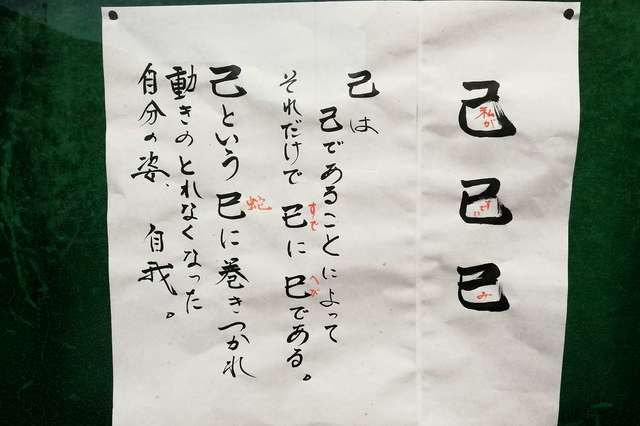 己 已 巳
私が
すでに
み
己は
己であることによって
すで
へび
それだけで 已に 巳である。
蛇
己という 巳に巻きつかれ
動きのとれなくなった
自分の姿、自我。